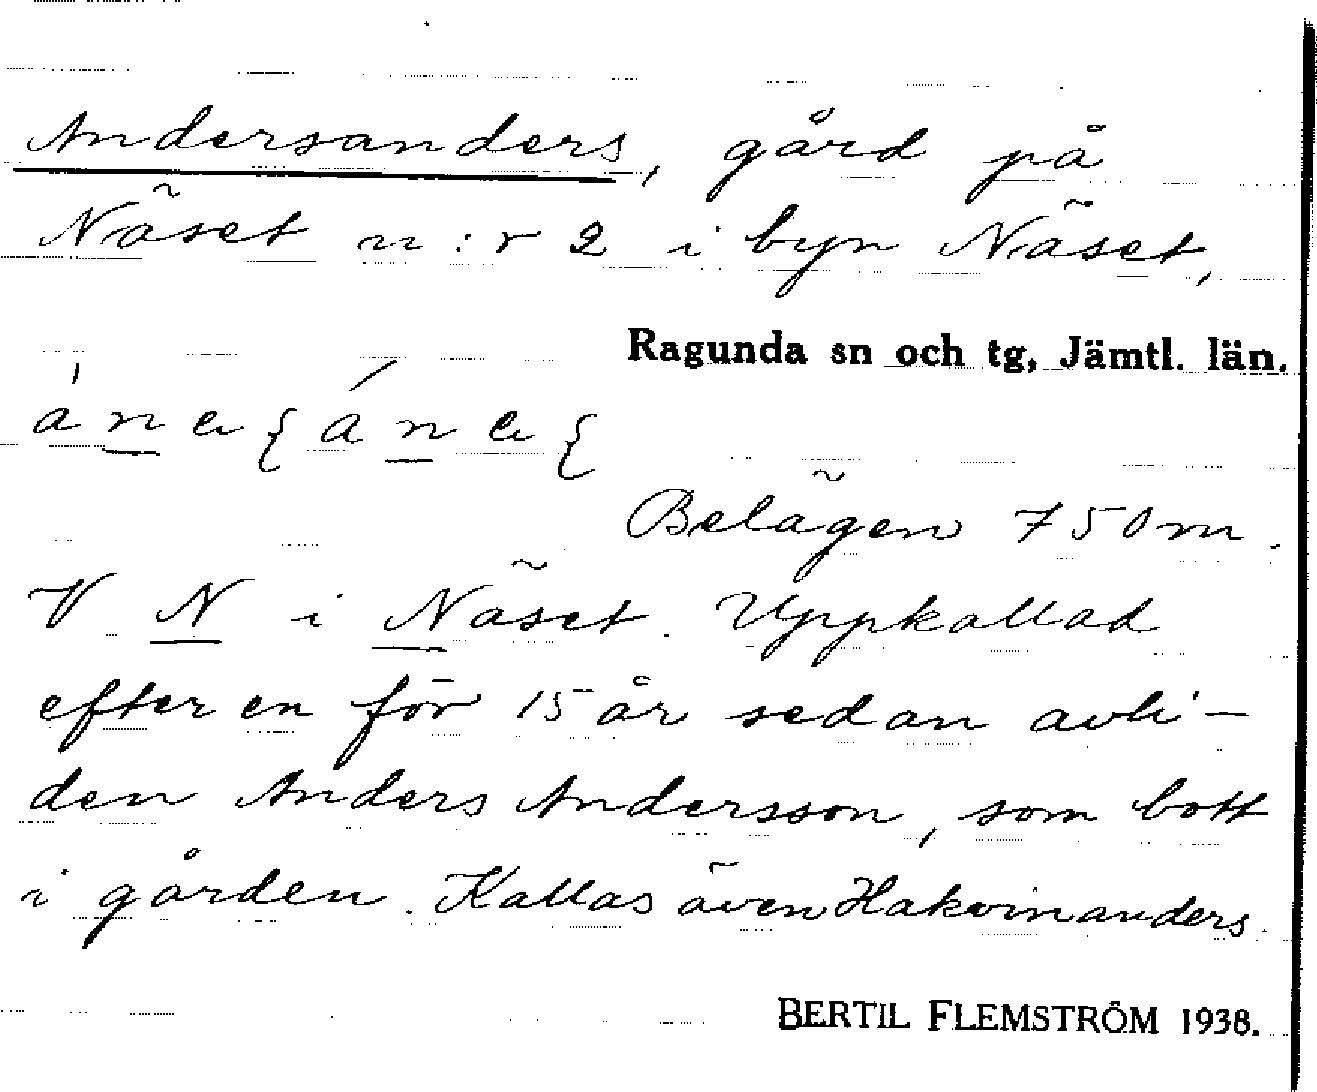 Andersanders, gård på
Näset n:r 2 i byn Näset,
Ragunda sn och tg, Jämtl. län.
Belägen 750 m.
V N i Näset. Uppkallad
efter en för 15 år sedan avli-
den Anders Andersson, som bott
i gården. Kallas även Hakvinanders.
BERTIL FLEMSTRÖM 1938.